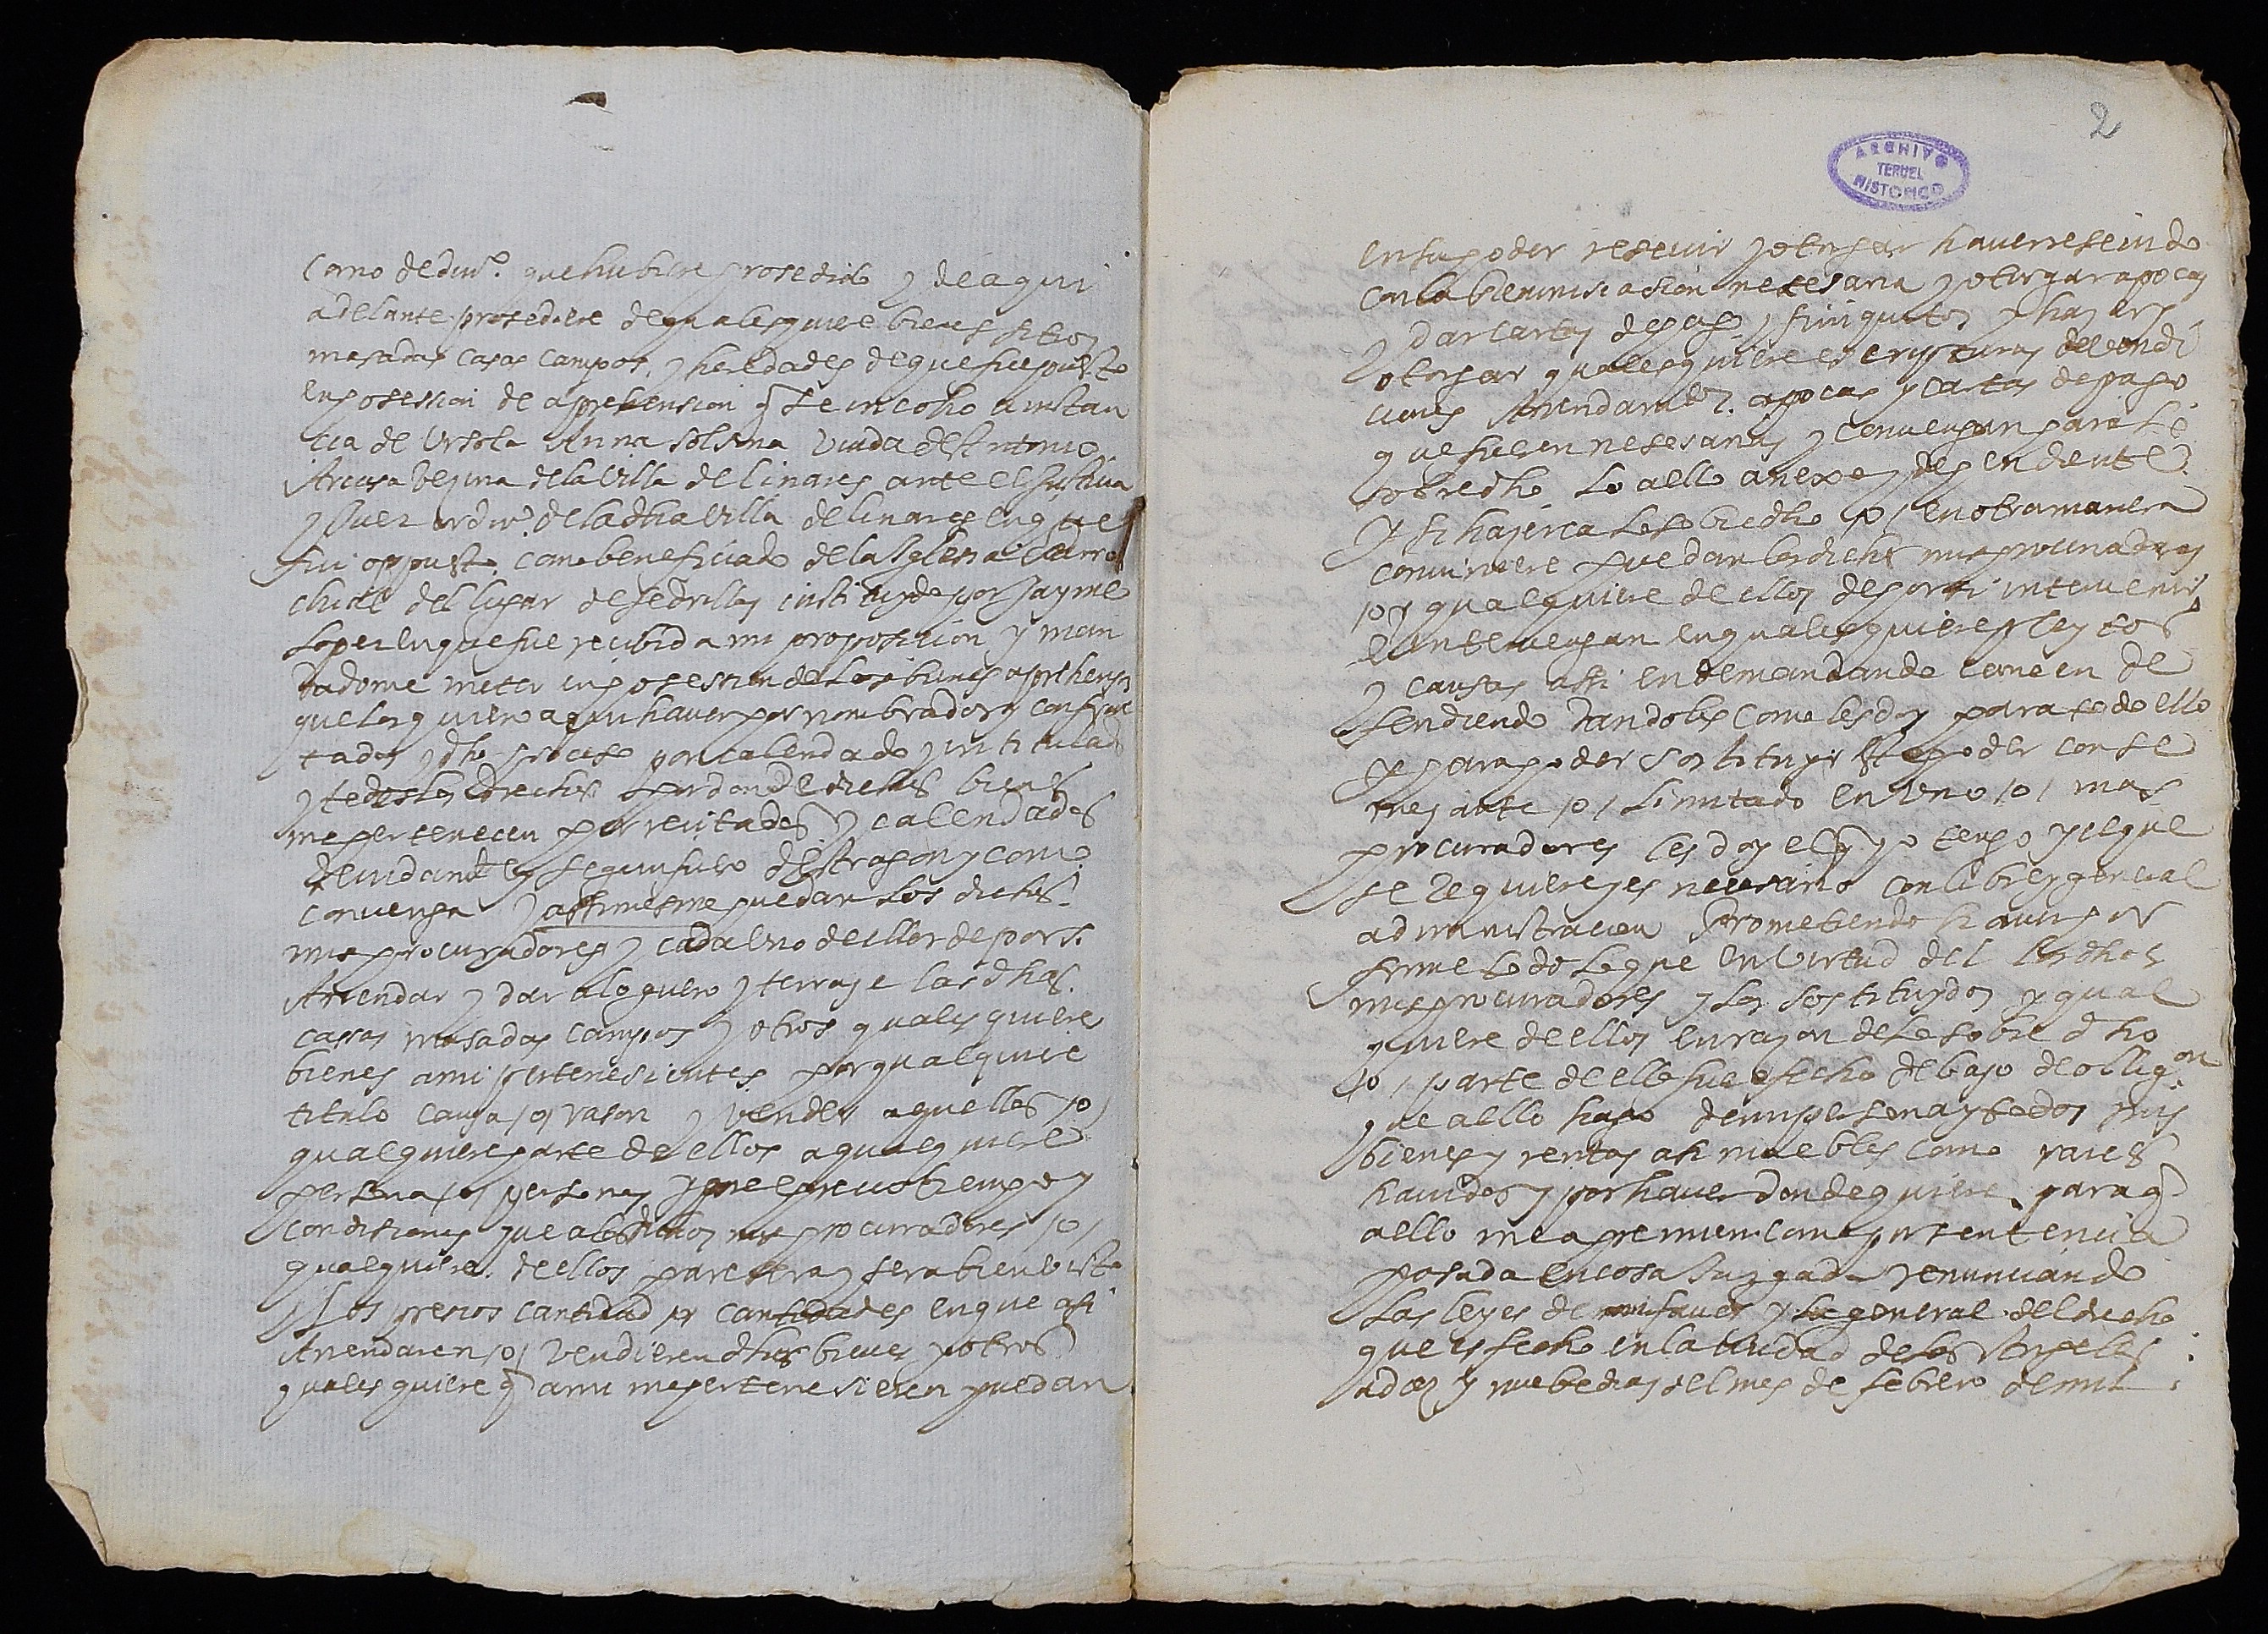 como de din.º que hubiere prosedido y de aqui
adelante prosediere de qualesquiere bienes sitios
masadas casas campos y heredades de que fue puesto
en posession de aprehension q̃ se incoho a instan
cia de Ursola Anna Solsona viuda de Antonio
Arcusa vezina de la Villa de linares ante el Justicia
y Juez ordin.º de la dha Villa de linares en q̃ fue
fui oppuesto como beneficiado de la Iglesia
del lugar de sedrillas instituydo por Jayme
Loper en que fue recibida mi proposicion y man
dadome meter in posession de los bienes aprehensos
que los quiero aqui haver por nombrados y confron
tados y dho proceso por calendado y intitulado
y todos los drechos por donde dichos bienes
me pertenecen por recitados y calendados
devidamente segun fuero de Aragon y como
convenga y assimesmo puedan los dichos
mis procuradores y cada uno de ellos de por si
Arrendar y dar a loguero y terraje las dhas
casas masadas campos y otros quales quiere
bienes a mi pertenesientes por qualquiere
titulo causa /o/ rason y vender aquellos /o/
qualquiere parte de ellos a qualquiere
persona /o/ personas y por el precio tiempo y
condisiones que a los dichos mis procuradores /o/
qualquiere de ellos parecera y sera bien visto
y los presios cantidad /o/ cantidades en que assi
Arrendaren /o/ vendieren dhos bienes y otros
quales quiere q̃ a mi me pertenesieren puedan
2
ARCHIVO
TERUEL
HISTORICO
en su poder resevir y otorgar haver resevido
con la bien necesaria y otorgar apocas
y dar cartas de pago y finiquitos y hazer y
otorgar qualesquiere escripturas de vendi
ciones Arrendam.tos apocas y cartas de pago
que fueren nesesarias y convengan para lo
sobredho lo a ello anexo y dependente
Y si hazerca lo sobredho /o/ en otra manera
conviniere puedan los dichos mis procuradores
/o/ qualquiere de ellos de por si intervenir
e intervengan en qualesquiere pleytos
y causas assi en demandando como en de
fendiendo dandoles como les doy para todo ello
y para poder sostituyr este poder con se
mejante /o/ limitado en uno /o/ mas
procuradores les doy el q̃ yo tengo y el que
se requiere y es necesario con libre y general
administracion Prometiendo haver por
firme todo lo que en virtud del los dhos
mis procuradores y los sostituydos y qual
quiere de ellos en razon de lo sobre dho
/o/ parte de ello fuere fecho debajo de oblig.on
que a ello hago de mi persona y todos mis
bienes y rentas assi muebles como raices
havidos y por haver donde quiere para q̃
a ello me apremien como por sentencia
pasada en cosa Juzgada renunciando
las leyes de mi favor y la general del drecho
que es fecho en la ciudad de los Angeles
a dez y nuebe dias del mes de febrero de mil